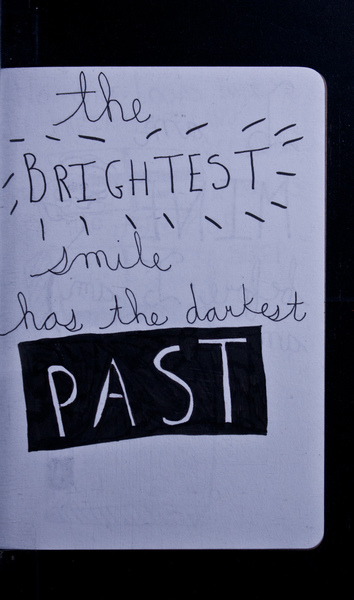 the
BRIGHTEST
smile
has the darkest
PAST